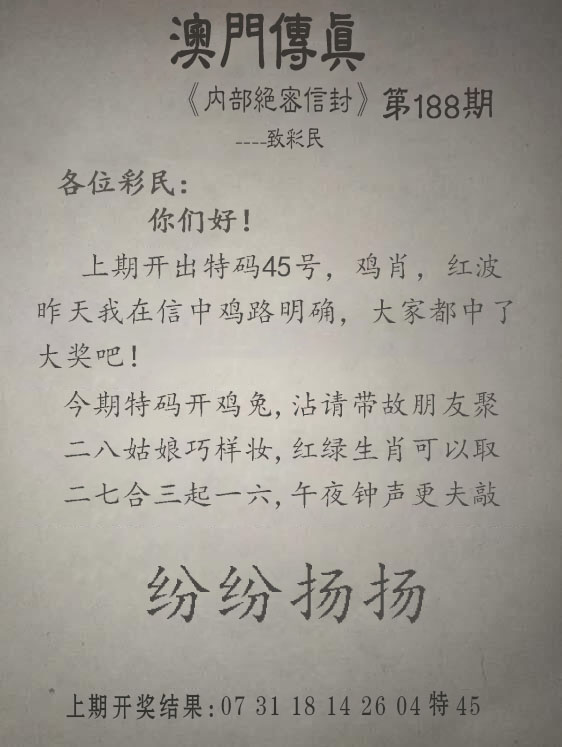 澳門傳眞
《内部絕密信封》第188期
----致彩民
各位彩民:
你们好!
上期开出特码45号，鸡肖，红波
昨天我在信中鸡路明确，大家都中了
大奖吧!
今期特码开鸡兔,沾请带故朋友聚
二八姑娘巧样妆,红绿生肖可以取
二七合三起一六,午夜钟声更夫敲
纷纷扬扬
上期开奖结果:07 31 18 14 26 04特45